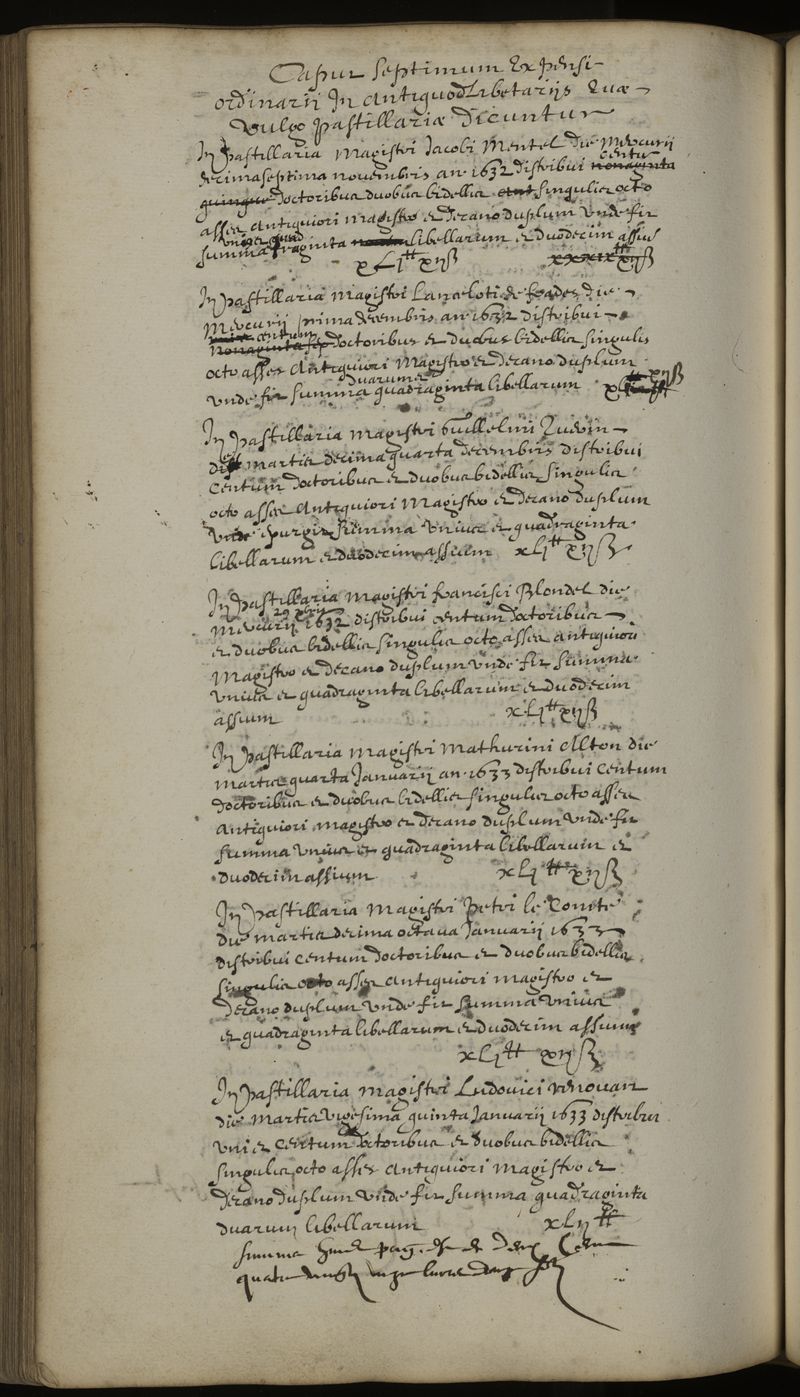 Caput septimum Expensi
ordinarii In antiquodlibetariis Quæ
vulgo pastillariæ dicuntur
In pastillaria Magistri Jacobi Mentel die Mercurii
decimaseptima novembris an. 1632 distribui nonaginta
centum
quinque doctoribus duobus bidellis singulis octo
asses Antiquiori magistro et decano duplum unde fit
unius et quad
summa raginta libellarum et duodecim assium
xLj tt xij ß xxxix tt xij ß
In pastillaria Magistri Lanceloti de frades die
Mercurii prima decembris an. 1632 distribui
centum
nonaginta sep doctoribus et duobus bidellis singulis
octo asses Antiquiori Magistro et decano duplum
duarum et
unde fit summa quadraginta libellarum
In pastillaria Magistri Guillelmi
die Martis decima quarta decembris distribui
centum doctoribus et duobus bidellis singulis
octo asses Antiquiori Magistro et decano duplum
unde surgit summa unius et quadraginta
libellarum et duodecim assium xLj tt xij ß
In pastillaria Magistri francisci Blondel die
Mercurii 1632 distribui centum doctoribus
et duobus bidellis singulis octo asses antiquiori
Magistro et decano duplum unde fit summa
unius et quadraginta libellarum et duodecim
assium xLj tt xij ß
In pastillaria Magistri Mathurini Alton die
Martis quarta Januarii an. 1633 distribui centum
doctoribus et duobus bidellis singulis octo asses
Antiquiori magistro et decano duplum unde fit
summa unius et quadraginta libellarum et
duodecim assium xLj tt xij ß
In pastillaria Magistri Petri le Conte
die martis decima octava Januarii 1633
distribui centum doctoribus et duobus bidellis
singulis octo asses Antiquiori magistro et
decano duplum unde fit summa unius
et quadraginta libellarum et duodecim assium
xLj tt xij ß
In pastillaria Magistri Ludovici
die Martis vigesima quinta Januarii 1633 distribui
uni et centum doctoribus et duobus bidellis
singulis octo asses Antiquiori Magistro et
decano duplum unde fit summa quadraginta
duarum libellarum xLij tt
summa pag. deux Cent
quatre vingts livres